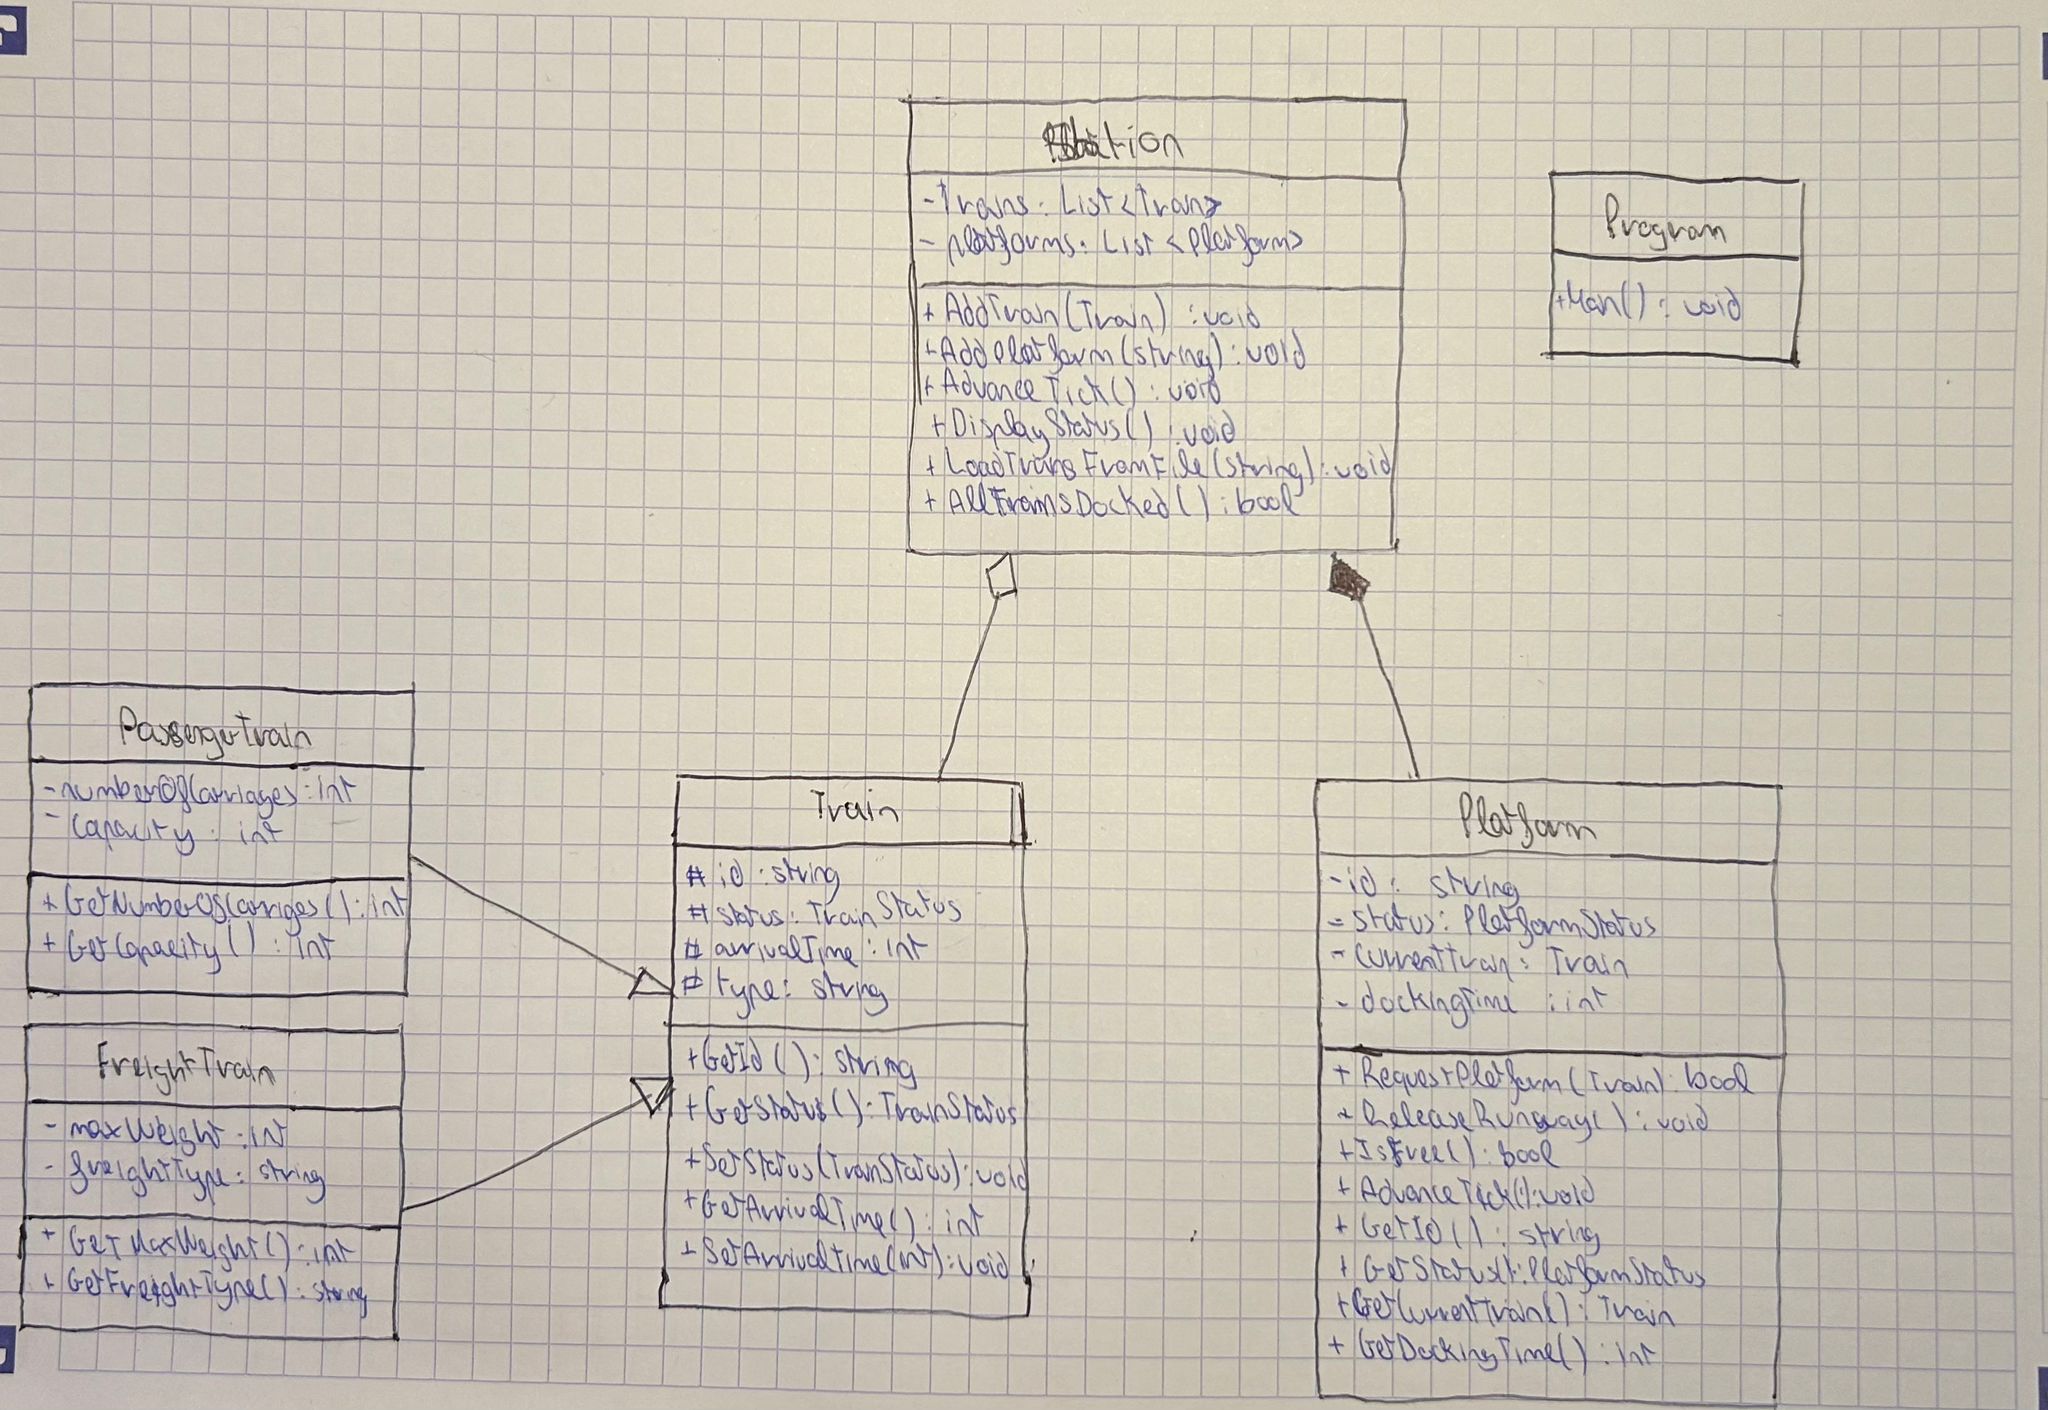 Station
- Trains: List<Train>
- platforms: List <Platform>
+ AddTrain(Train) : void
+ AddPlatform(string): void
+ AdvanceTick() : void
+ DisplayStatus() : void
+ LoadTrainsFromFile(string): void
+ AllTrainsDocked() : bool
Program
+Main() : void
PassengerTrain
- numberOfCarriages : int
- capacity : int
+ GetNumberOfCarriges() : int
+ GetCapacity() : int
FreightTrain
- maxWeight : int
- freightType : string
+ GetMaxWeight() : int
+ GetFreightType() : string
Train
# id : string
# status : TrainStatus
# arrivalTime : int
# type : string
+ GetId() : string
+ GetStatus() : TrainStatus
+ SetStatus(TrainStatus) : void
+ GetArrivalTime() : int
+ SetArrivalTime(int) : void
Platform
- id : string
- status : PlatformStatus
- currentTrain : Train
- dockingTime : int
+ RequestPlatform(Train) : bool
+ ReleaseRunway() : void
+ IsFree() : bool
+ AdvanceTick() : void
+ GetID() : string
+ GetStatus() : PlatformStatus
+ GetCurrentTrain() : Train
+ GetDockingTime() : int